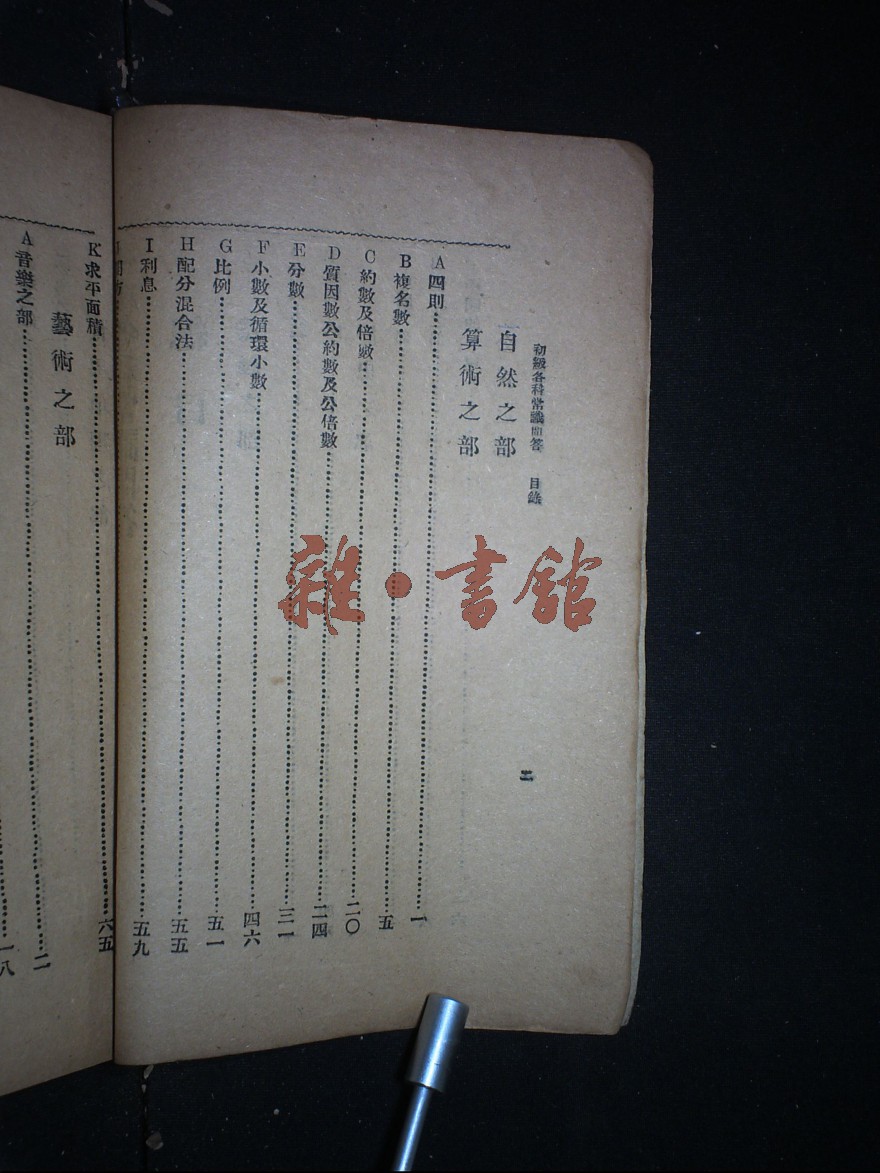 初級各科常識問答 目錄 二
自然之部
算術之部
A四則……一
B複名數……五
C約數及倍數……二〇
D質因數公約數及公倍數……二四
E分數……三一
F小數及循環小數……四六
G比例……五一
H配分混合法……五五
I利息……五九
K求平面積……六五
藝術之部
A音樂之部……二
一八
雜·書館